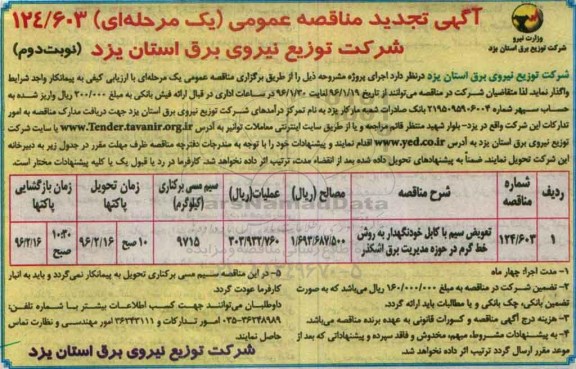 آگهی تجدید مناقصه عمومی (یک مرحله‌ای) ۱۲۴/۶۰۳
شرکت توزیع نیروی برق استان یزد (نوبت دوم)
وزارت نیرو
شرکت توزیع نیروی برق استان یزد
شرکت توزیع نیروی برق استان یزد درنظر دارد اجرای پروژه مشروحه ذیل را از طریق برگزاری مناقصه عمومی یک مرحله‌ای با ارزیابی کیفی به پیمانکار واجد شرایط
واگذار نماید، لذا متقاضیان شرکت در مناقصه می‌توانند از تاریخ ۹۶/۱/۱۹ لغایت ۹۶/۱/۳۰ در ساعات اداری در قبال ارائه فیش بانکی به مبلغ ۳۰۰/۰۰۰ ریال واریز شده به
حساب سپهر شماره ۰۲۱۹۵۰۹۵۹۰۶۰۰۴ بانک صادرات شعبه مارکار یزد به نام تمرکز درآمدهای شرکت توزیع نیروی برق استان یزد جهت دریافت مدارک مناقصه به امور
تدارکات این شرکت واقع در یزد- بلوار شهید منتظر قائم مراجعه و یا از طریق سایت اینترنتی معاملات توانیر به آدرس www.Tender.tavanir.org.ir یا سایت شرکت
توزیع نیروی برق استان یزد به آدرس www.yed.co.ir اقدام نمایند و پیشنهادات خود را با توجه به مندرجات دفترچه مناقصه ظرف مهلت مقرر در جدول زیر به دبیرخانه
این شرکت تحویل نمایند. ضمناً به پیشنهادهای تحویل داده شده بعد از انقضاء مدت، ترتیب اثر داده نخواهد شد. کارفرما در رد یا قبول یک یا کلیه پیشنهادات مختار است.
ردیف | شماره مناقصه | شرح مناقصه | مصالح (ریال) | عملیات(ریال) | سیم مسی برکناری (کیلوگرم) | زمان تحویل پاکتها | زمان بازگشایی پاکتها
۱ | ۱۲۴/۶۰۳ | تعویض سیم با کابل خودنگهدار به روش خط گرم در حوزه مدیریت برق اشکذر | ۱/۶۹۲/۶۸۷/۵۰۰ | ۳۰۲/۹۳۲/۷۶۰ | ۹۷۱۵ | ۱۰ صبح ۹۶/۲/۱۶ | ۱۰:۳۰ صبح ۹۶/۲/۱۶
۱- مدت اجرا: چهار ماه
۲- تضمین شرکت در مناقصه به مبلغ ۱۶۰/۰۰۰/۰۰۰ ریال می‌باشد که به صورت
تضمین بانکی، چک بانکی و یا مطالبات باید ارائه گردد.
۳- هزینه درج آگهی مناقصه و کسورات قانونی به عهده برنده مناقصه می‌باشد.
۴- به پیشنهادات مشروط، مبهم، مخدوش و فاقد سپرده و پیشنهاداتی که بعد از
موعد مقرر ارسال گردد ترتیب اثر داده نخواهد شد.
۵- در این مناقصه سیم مسی برکناری تحویل به پیمانکار نمی‌گردد و باید به انبار
کارفرما عودت گردد.
داوطلبان می‌توانند جهت کسب اطلاعات بیشتر با شماره تلفن:
۰۳۵-۳۶۲۴۸۹۸۹ امور تدارکات و ۳۶۲۴۳۱۱۱ امور مهندسی و نظارت تماس
حاصل نمایند.
شرکت توزیع نیروی برق استان یزد